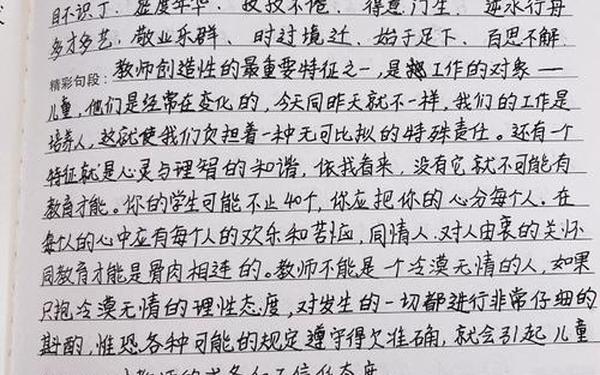 目不识丁、虚度年华、孜孜不倦、得意门生、逆水行舟
多才多艺、敬业乐群、时过境迁、始于足下、百思不解
精彩句段：教师创造性的最重要特征之一，是他工作的对象——
儿童，他们是经常在变化的，今天同昨天就不一样，我们的工作是
培养人，这就使我们负担着一种无可比拟的特殊责任。还有一个
特征就是心灵与理智的和谐，依我看来，没有它就不可能有
教育才能。你的学生可能不止40个，你应把你的心分每个人。在
每个人的心中应有每个人的欢乐和苦恼，同情人、对人由衷的关怀
同教育才能是骨肉相连的。教师不能是一个冷漠无情的人，如果
只抱冷漠无情的理性态度，对发生的一切都进行非常仔细的
斟酌，惟恐各种可能的规定遵守得欠准确，就会引起儿童